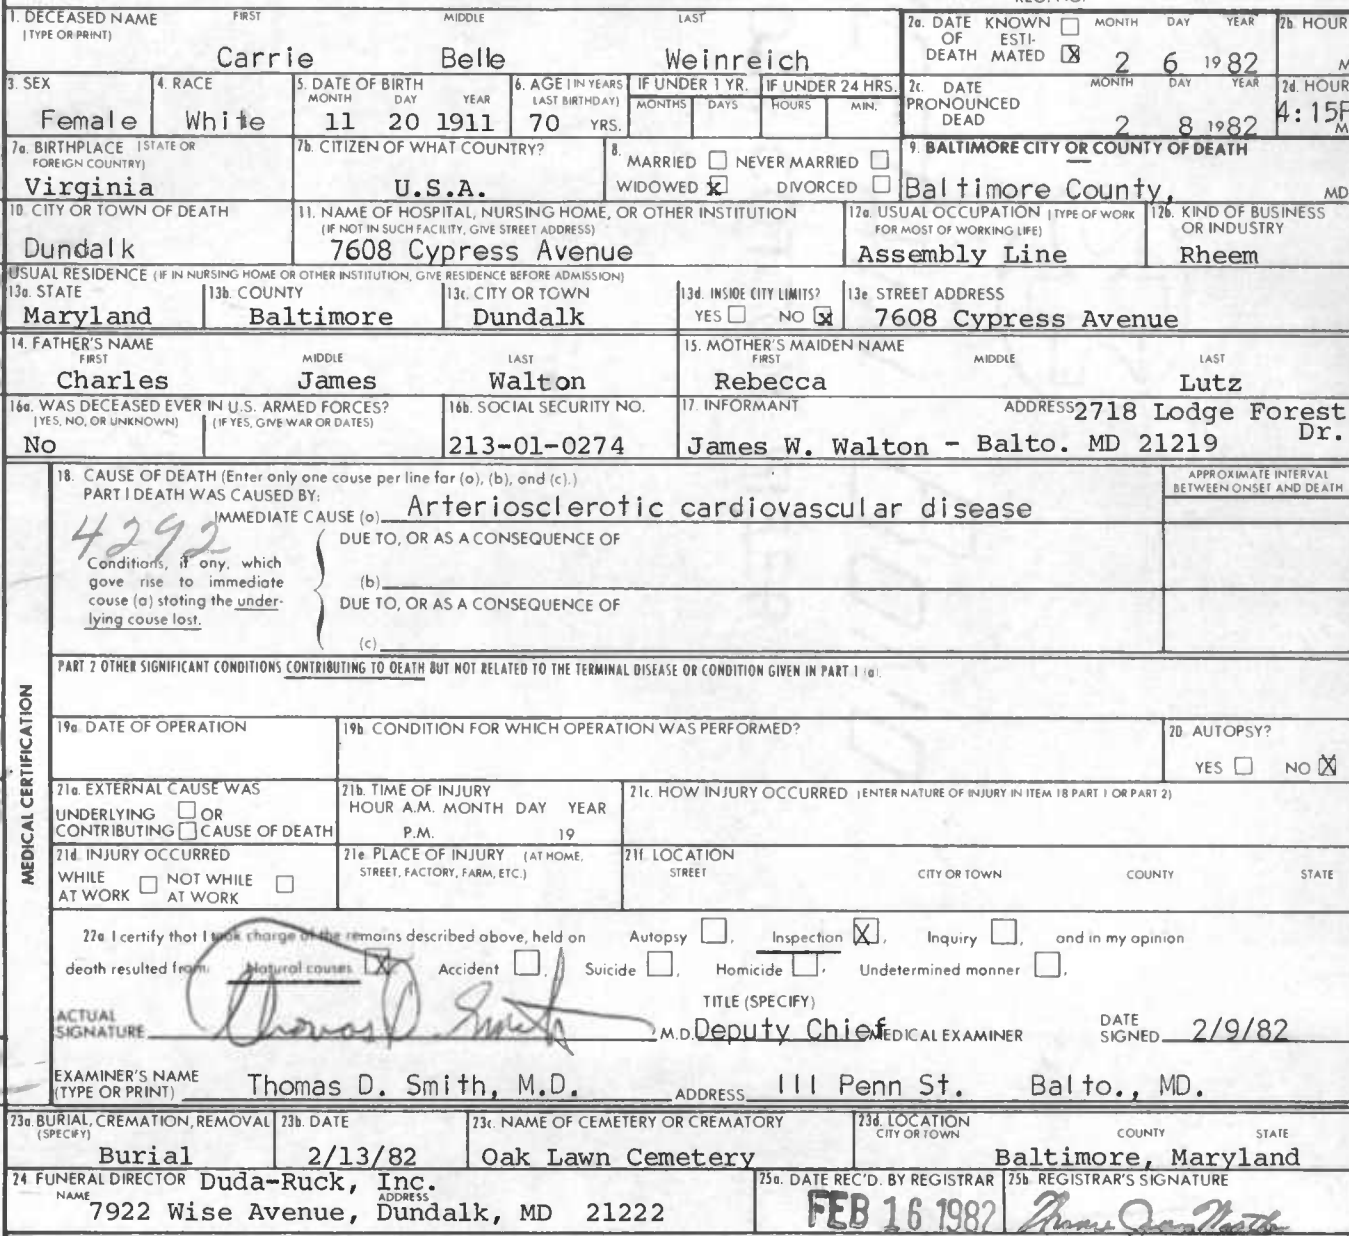 1. DECEASED NAME FIRST MIDDLE LAST
(TYPE OR PRINT)
Carrie Belle Weinreich
2a. DATE KNOWN ☐ MONTH DAY YEAR
OF ESTI-
DEATH MATED ☒ 2 6 1982
2b. HOUR
M
3. SEX
Female
4. RACE
White
5. DATE OF BIRTH
MONTH DAY YEAR
11 20 1911
6. AGE (IN YEARS
LAST BIRTHDAY)
70 YRS.
IF UNDER 1 YR.
MONTHS DAYS
IF UNDER 24 HRS.
HOURS MIN.
2c. DATE MONTH DAY YEAR
PRONOUNCED
DEAD 2 8 1982
2d. HOUR
4:15P
M
7a. BIRTHPLACE (STATE OR
FOREIGN COUNTRY)
Virginia
7b. CITIZEN OF WHAT COUNTRY?
U.S.A.
8.
MARRIED ☐ NEVER MARRIED ☐
WIDOWED ☒ DIVORCED ☐
9. BALTIMORE CITY OR COUNTY OF DEATH
Baltimore County, MD
10. CITY OR TOWN OF DEATH
Dundalk
11. NAME OF HOSPITAL, NURSING HOME, OR OTHER INSTITUTION
(IF NOT IN SUCH FACILITY, GIVE STREET ADDRESS)
7608 Cypress Avenue
12a. USUAL OCCUPATION (TYPE OF WORK
FOR MOST OF WORKING LIFE)
Assembly Line
12b. KIND OF BUSINESS
OR INDUSTRY
Rheem
USUAL RESIDENCE (IF IN NURSING HOME OR OTHER INSTITUTION, GIVE RESIDENCE BEFORE ADMISSION)
13a. STATE
Maryland
13b. COUNTY
Baltimore
13c. CITY OR TOWN
Dundalk
13d. INSIDE CITY LIMITS?
YES ☐ NO ☒
13e STREET ADDRESS
7608 Cypress Avenue
14. FATHER'S NAME
FIRST MIDDLE LAST
Charles James Walton
15. MOTHER'S MAIDEN NAME
FIRST MIDDLE LAST
Rebecca Lutz
16a. WAS DECEASED EVER IN U.S. ARMED FORCES?
(YES, NO, OR UNKNOWN) (IF YES, GIVE WAR OR DATES)
No
16b. SOCIAL SECURITY NO.
213-01-0274
17. INFORMANT ADDRESS 2718 Lodge Forest
Dr.
James W. Walton - Balto. MD 21219
MEDICAL CERTIFICATION
18. CAUSE OF DEATH (Enter only one cause per line for (a), (b), and (c).)
PART I DEATH WAS CAUSED BY:
APPROXIMATE INTERVAL
BETWEEN ONSET AND DEATH
IMMEDIATE CAUSE (a) Arteriosclerotic cardiovascular disease
4292
DUE TO, OR AS A CONSEQUENCE OF
Conditions, if any, which
gave rise to immediate
cause (a) stating the under-
lying cause last.
(b)
DUE TO, OR AS A CONSEQUENCE OF
(c)
PART 2 OTHER SIGNIFICANT CONDITIONS CONTRIBUTING TO DEATH BUT NOT RELATED TO THE TERMINAL DISEASE OR CONDITION GIVEN IN PART 1 (a).
19a DATE OF OPERATION
19b CONDITION FOR WHICH OPERATION WAS PERFORMED?
20 AUTOPSY?
YES ☐ NO ☒
21a. EXTERNAL CAUSE WAS
UNDERLYING ☐ OR
CONTRIBUTING ☐ CAUSE OF DEATH
21b. TIME OF INJURY
HOUR A.M. MONTH DAY YEAR
P.M. 19
21c. HOW INJURY OCCURRED (ENTER NATURE OF INJURY IN ITEM 18 PART 1 OR PART 2)
21d INJURY OCCURRED
WHILE ☐ NOT WHILE ☐
AT WORK AT WORK
21e PLACE OF INJURY (AT HOME,
STREET, FACTORY, FARM, ETC.)
21f. LOCATION
STREET CITY OR TOWN COUNTY STATE
22a I certify that I took charge of the remains described above, held on Autopsy ☐, Inspection ☒, Inquiry ☐, and in my opinion
death resulted from Natural causes ☒ Accident ☐, Suicide ☐, Homicide ☐, Undetermined manner ☐.
ACTUAL
SIGNATURE Thomas D. Smith M.D.
TITLE (SPECIFY)
Deputy Chief MEDICAL EXAMINER
DATE
SIGNED 2/9/82
EXAMINER'S NAME
(TYPE OR PRINT) Thomas D. Smith, M.D. ADDRESS 111 Penn St. Balto., MD.
23a. BURIAL, CREMATION, REMOVAL
(SPECIFY)
Burial
23b. DATE
2/13/82
23c. NAME OF CEMETERY OR CREMATORY
Oak Lawn Cemetery
23d. LOCATION
CITY OR TOWN COUNTY STATE
Baltimore, Maryland
24. FUNERAL DIRECTOR Duda-Ruck, Inc.
NAME ADDRESS
7922 Wise Avenue, Dundalk, MD 21222
25a. DATE REC'D. BY REGISTRAR
FEB 16 1982
25b. REGISTRAR'S SIGNATURE